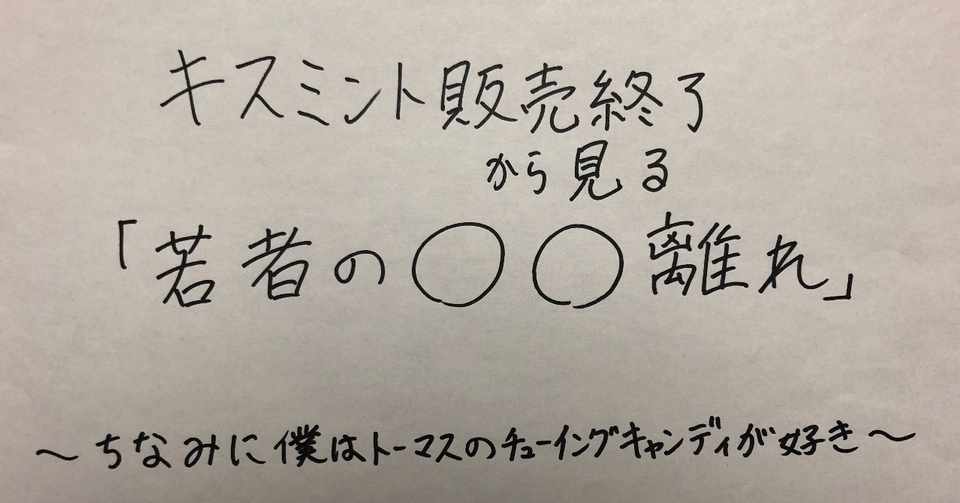 キスミント販売終了
から見る
「若者の〇〇離れ」
～ちなみに僕はトーマスのチューイングキャンディが好き～